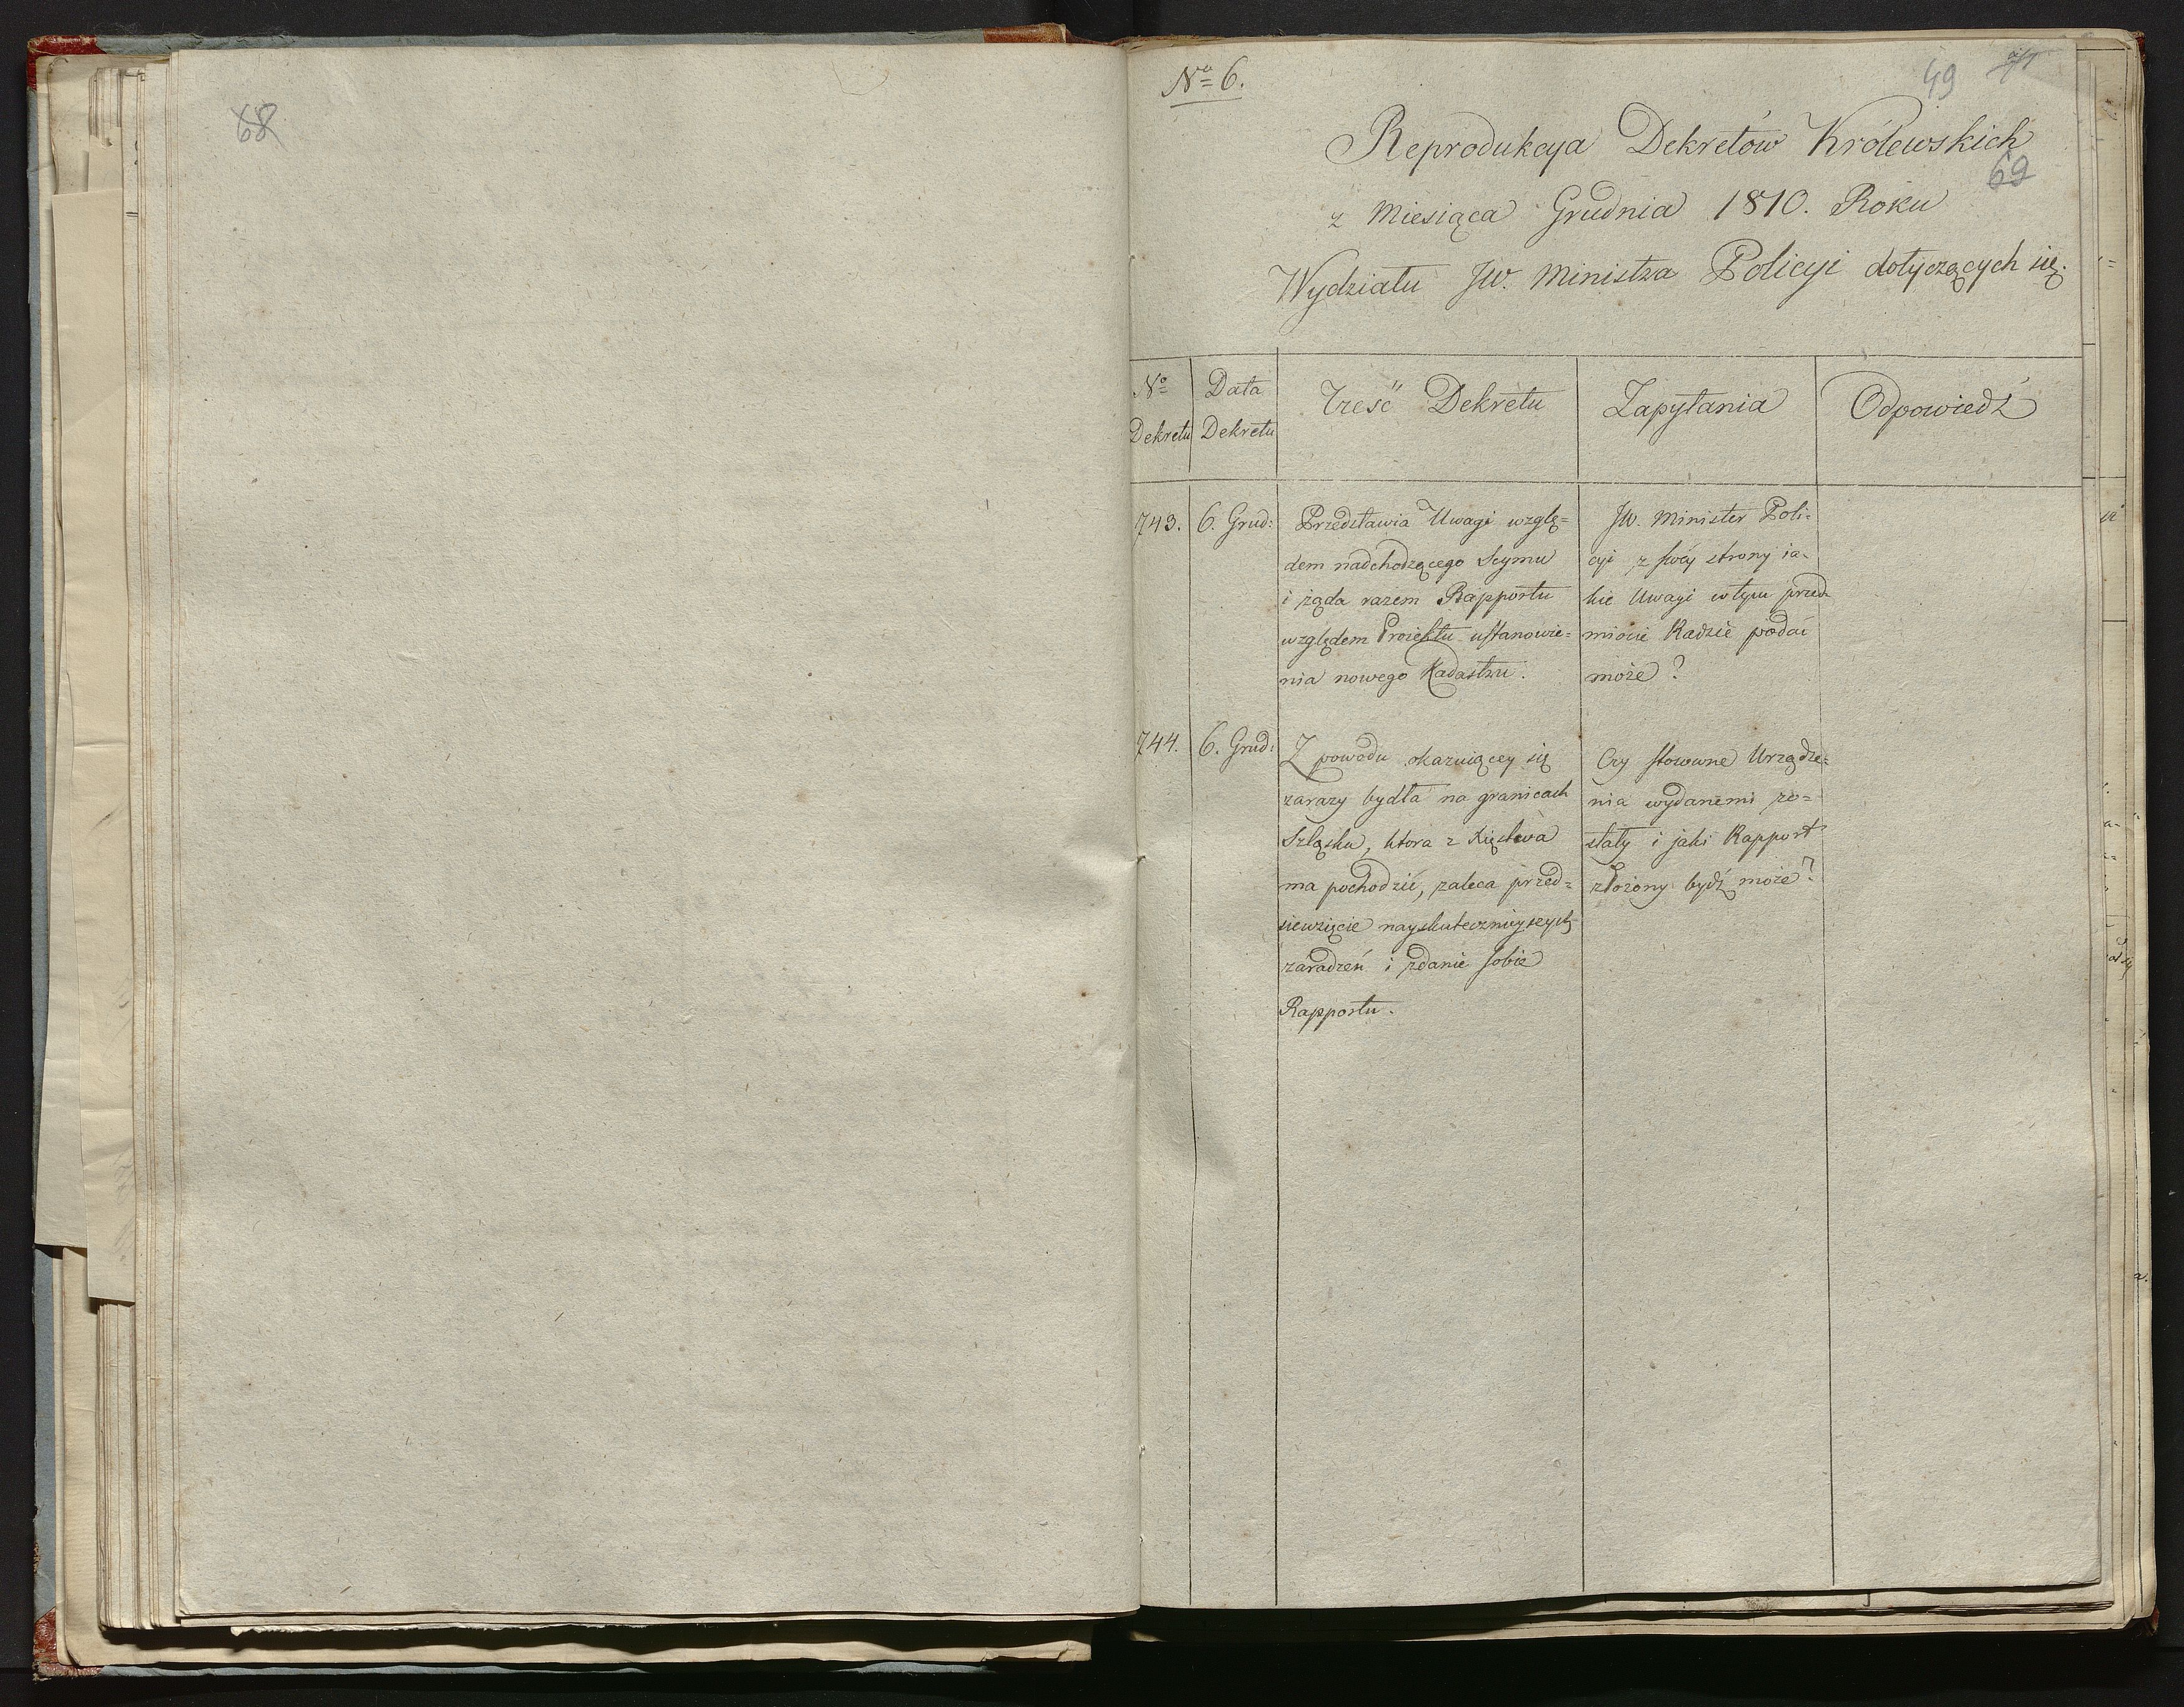 68
Nº 6.
49
69
Reprodukcya Dekretów Królewskich
z Miesiąca Grudnia 1810. Roku
Wydziału JW. Ministra Policyi dotyczących się.
Nº Dekretu
Data Dekretu
Treść Dekretu
Zapytania
Odpowiedź
743.
6. Grud:
Przedstawia Uwagi wzglę=
dem nadchodzącego Seymu
i żąda razem Rapportu
względem Proiektu ustanowie=
nia nowego Kadastru.
JW. Minister Poli-
cyi z swéy strony ia-
kie Uwagi w tym przed-
miocie Radzie podać
może?
744.
6. Grud:
Z powodu okazuiącey się
zarazy bydła na granicach
Szląska, ktora z Xięstwa
ma pochodzić, zaleca przed=
sięwzięcie nayskutecznieyszych
zaradzeń i zdanie sobie
Rapportu.
Czy stosowne Urządze=
nia wydanemi zo=
stały i jaki Rapport
złożony bydź może?